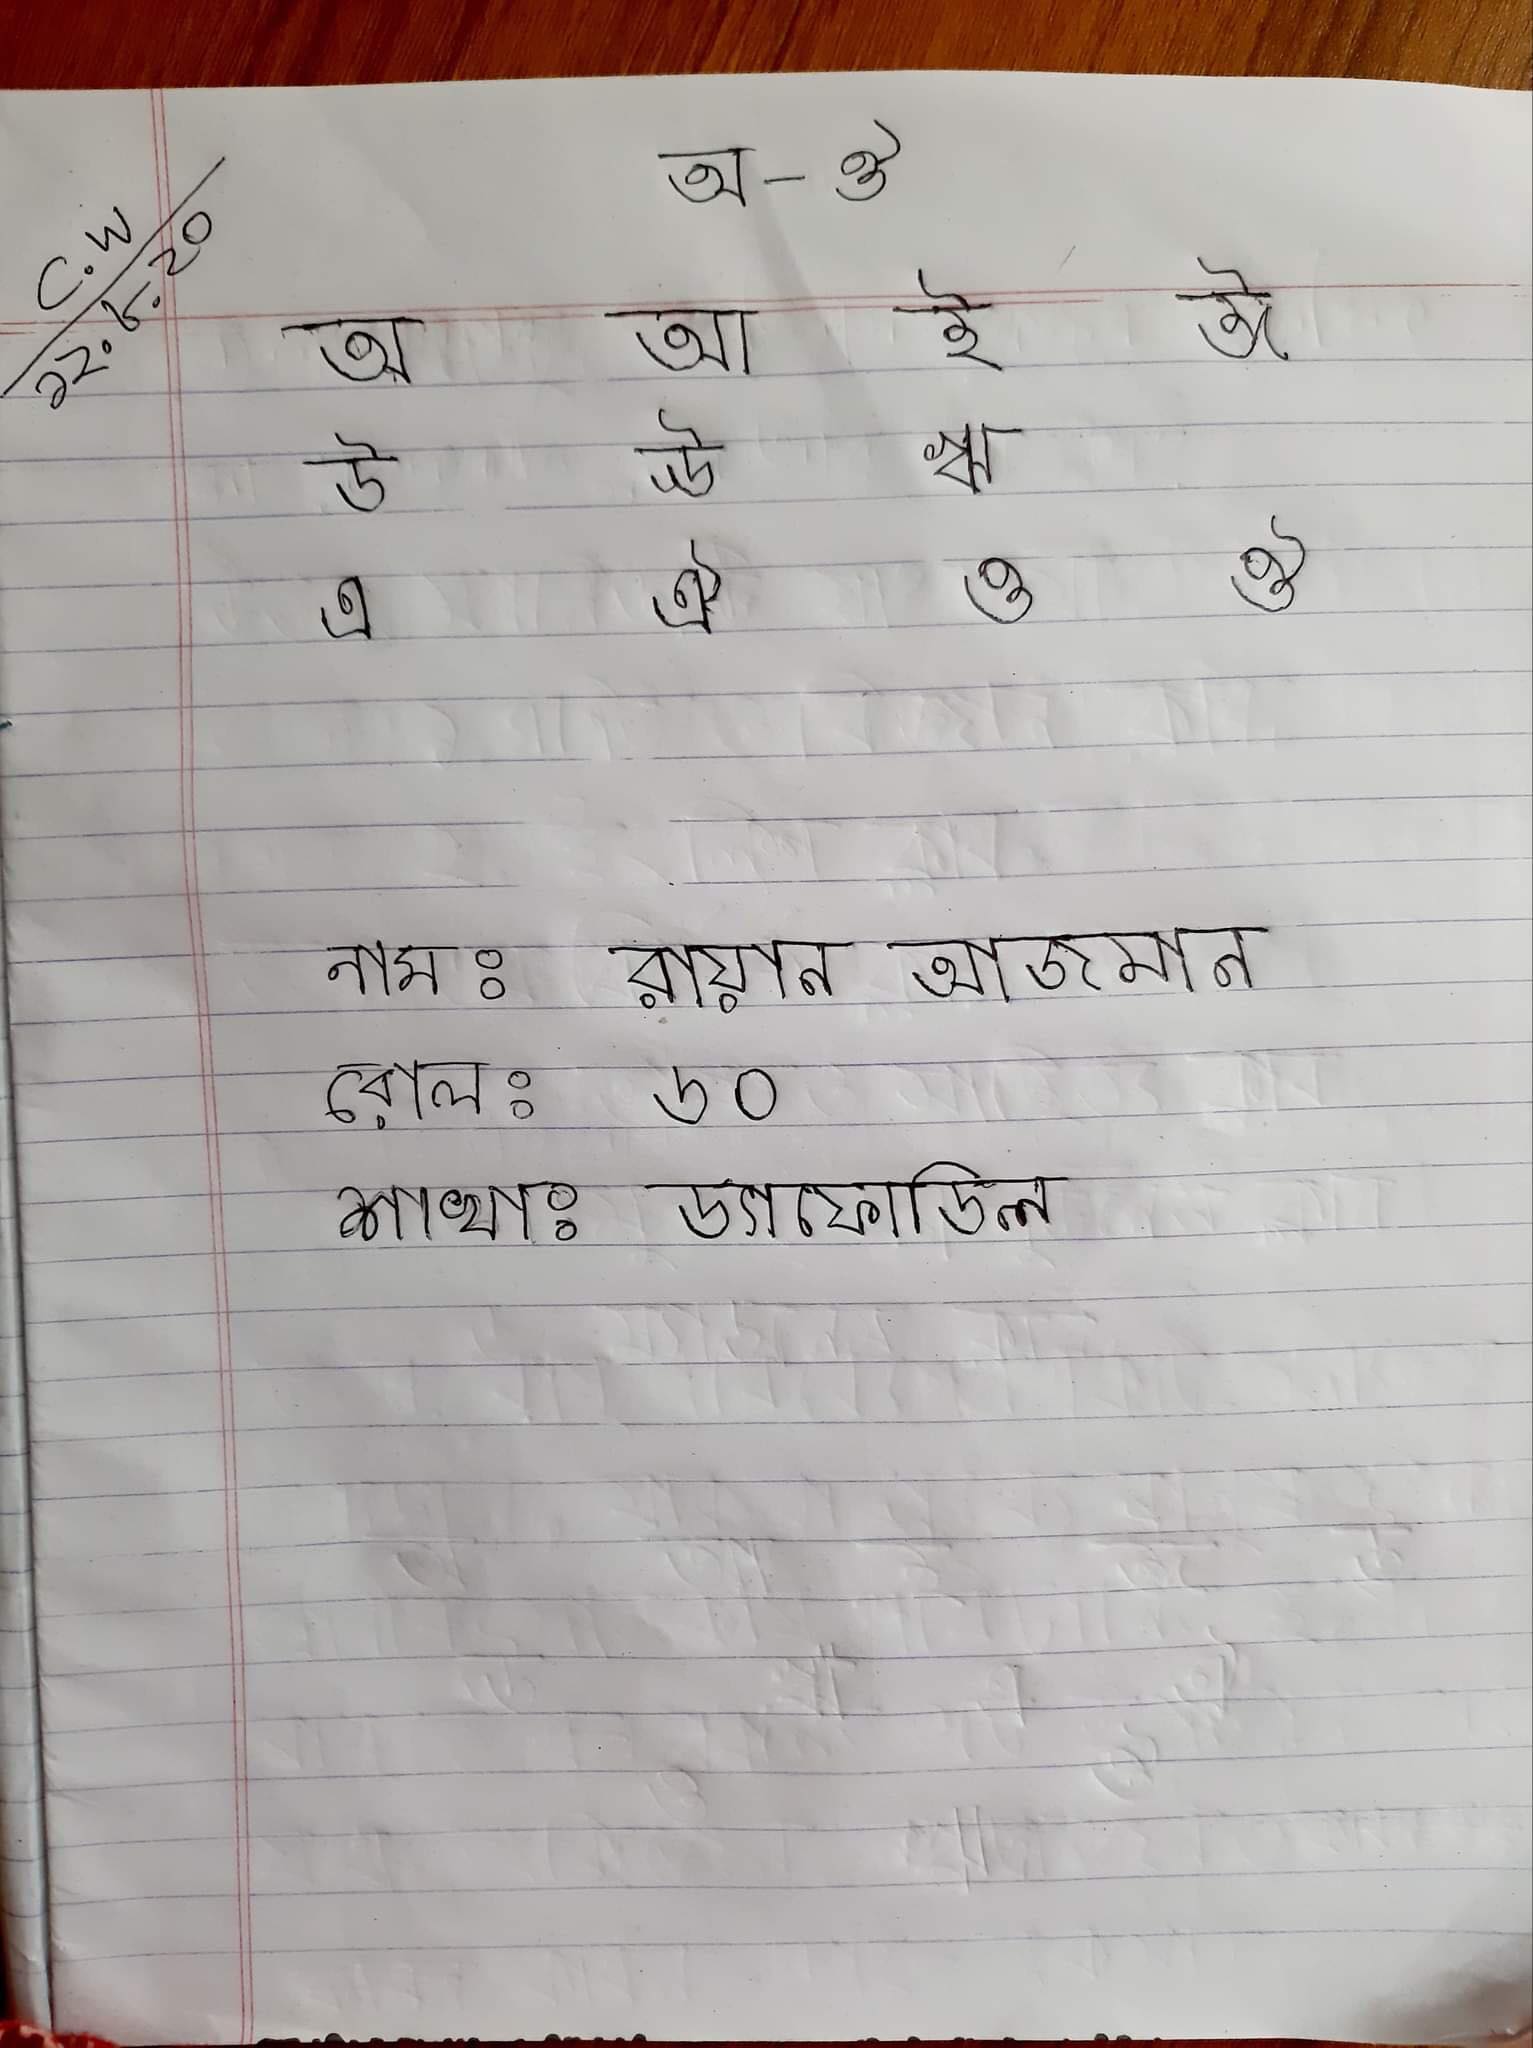 C.W
২২.৮.২০
অ - ঔ
অ আ ই ঈ
উ ঊ ঋ
এ ঐ ও ঔ
নামঃ রায়ান আজমান
রোলঃ ৬০
শাখাঃ ড্যাফোডিল